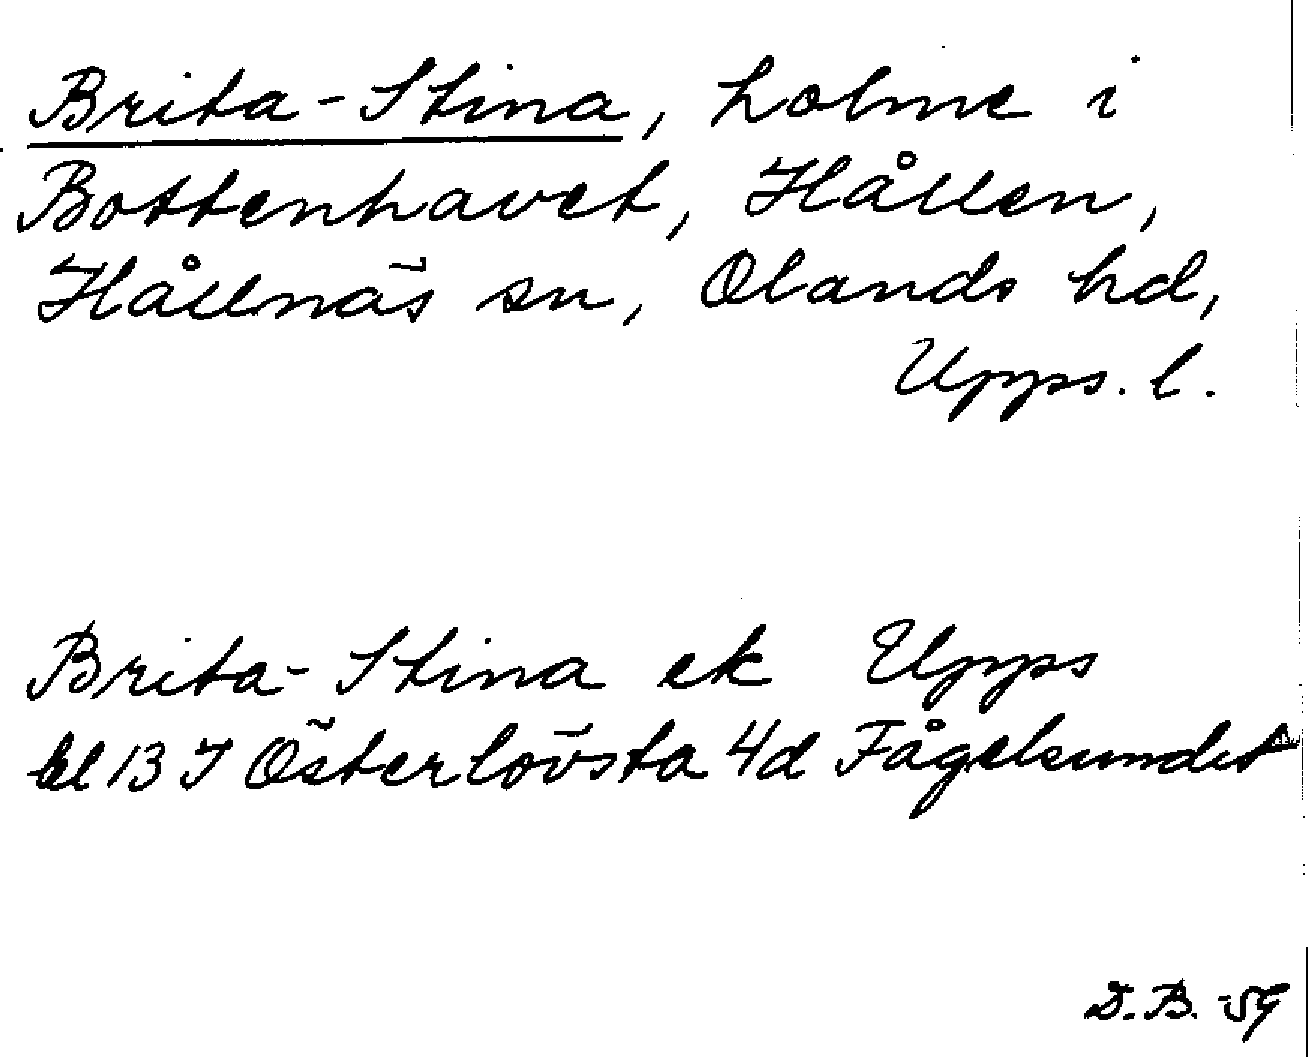 Brita-Stina, holme i
Bottenhavet, Hållen,
Hållnäs sn, Olands hd,
Upps. l.
Brita-Stina ek Upps
bl 13 I Österlövsta 4d Fågelsundet
D.B. -59